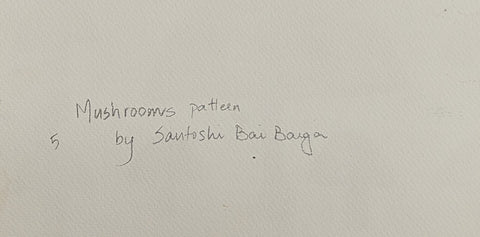 Mushrooms pattern
5 by Santoshi Bai Baiga